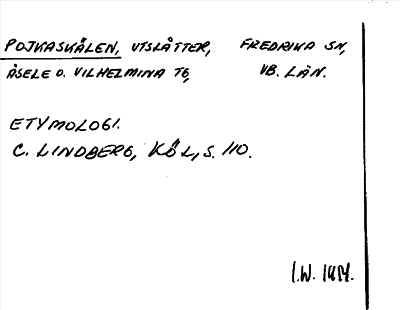 POJKASKÄLEN, UTSLÅTTER, FREDRIKA SN,
ÅSELE O. VILHELMINA TG, VB. LÄN.
ETYMOLOGI.
C. LINDBERG, KÖL, S. 110.
I.W.